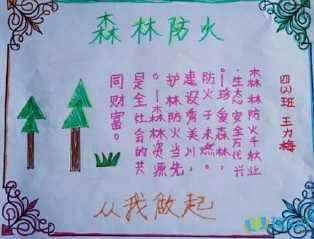 森林防火
森林防火千秋业
，生态安全万代兴
。珍爱森林，
防火于未燃。
建设秀美川，
护林防火当先
。森林资源
是全社会的共
同财富。
四(2)班 王力梅
从我做起